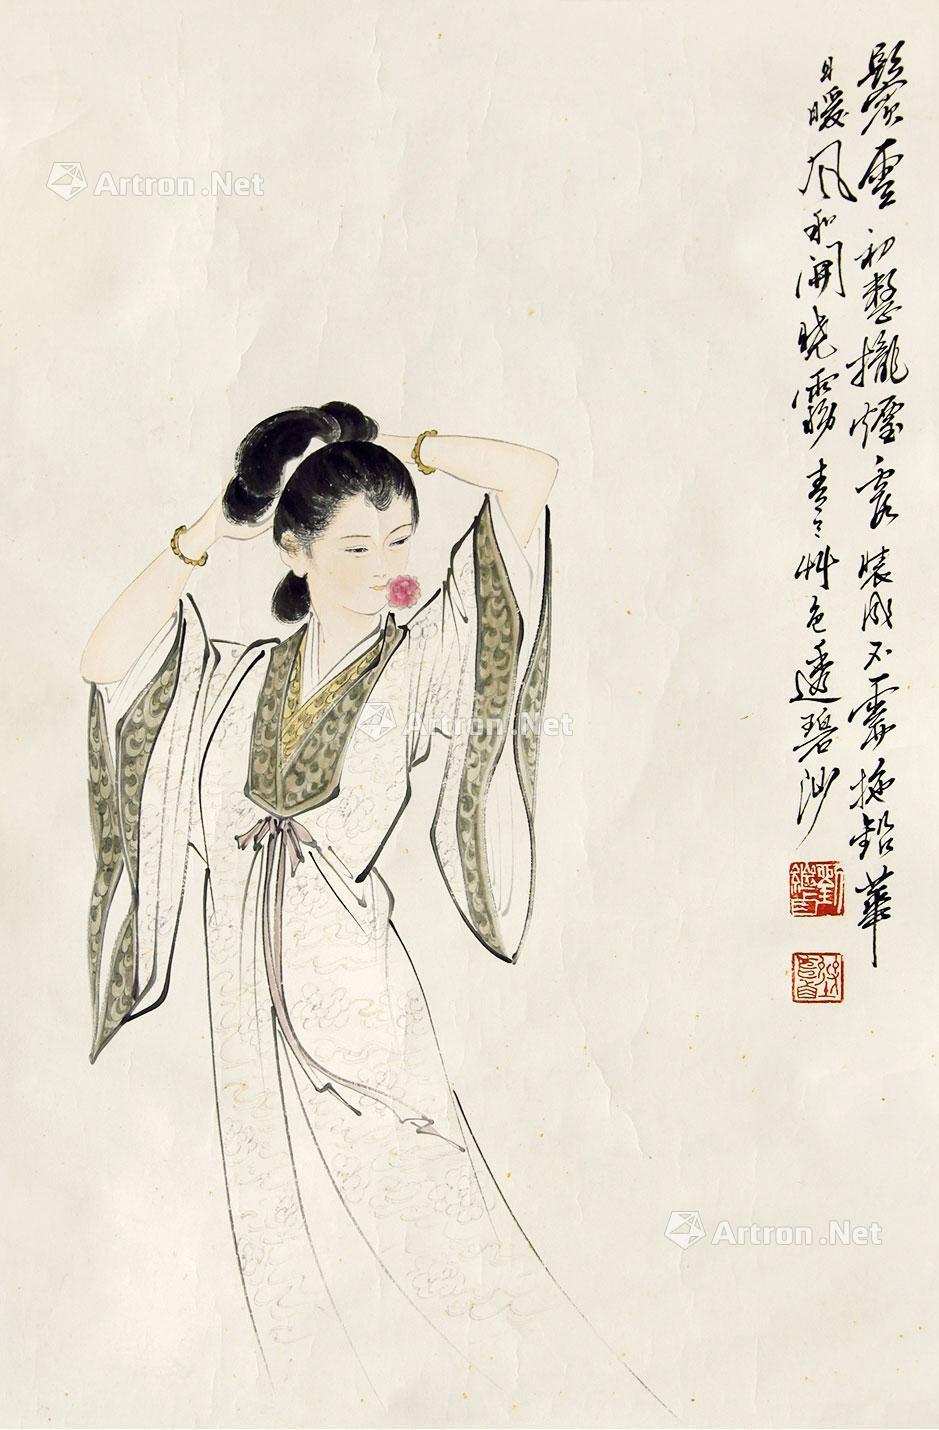 鬓雲初整攏煙霞裝成不需施鉛華
日暖風和開曉霧青青艸色透碧沙
Artron.Net
Artron.Net
Artron.Net